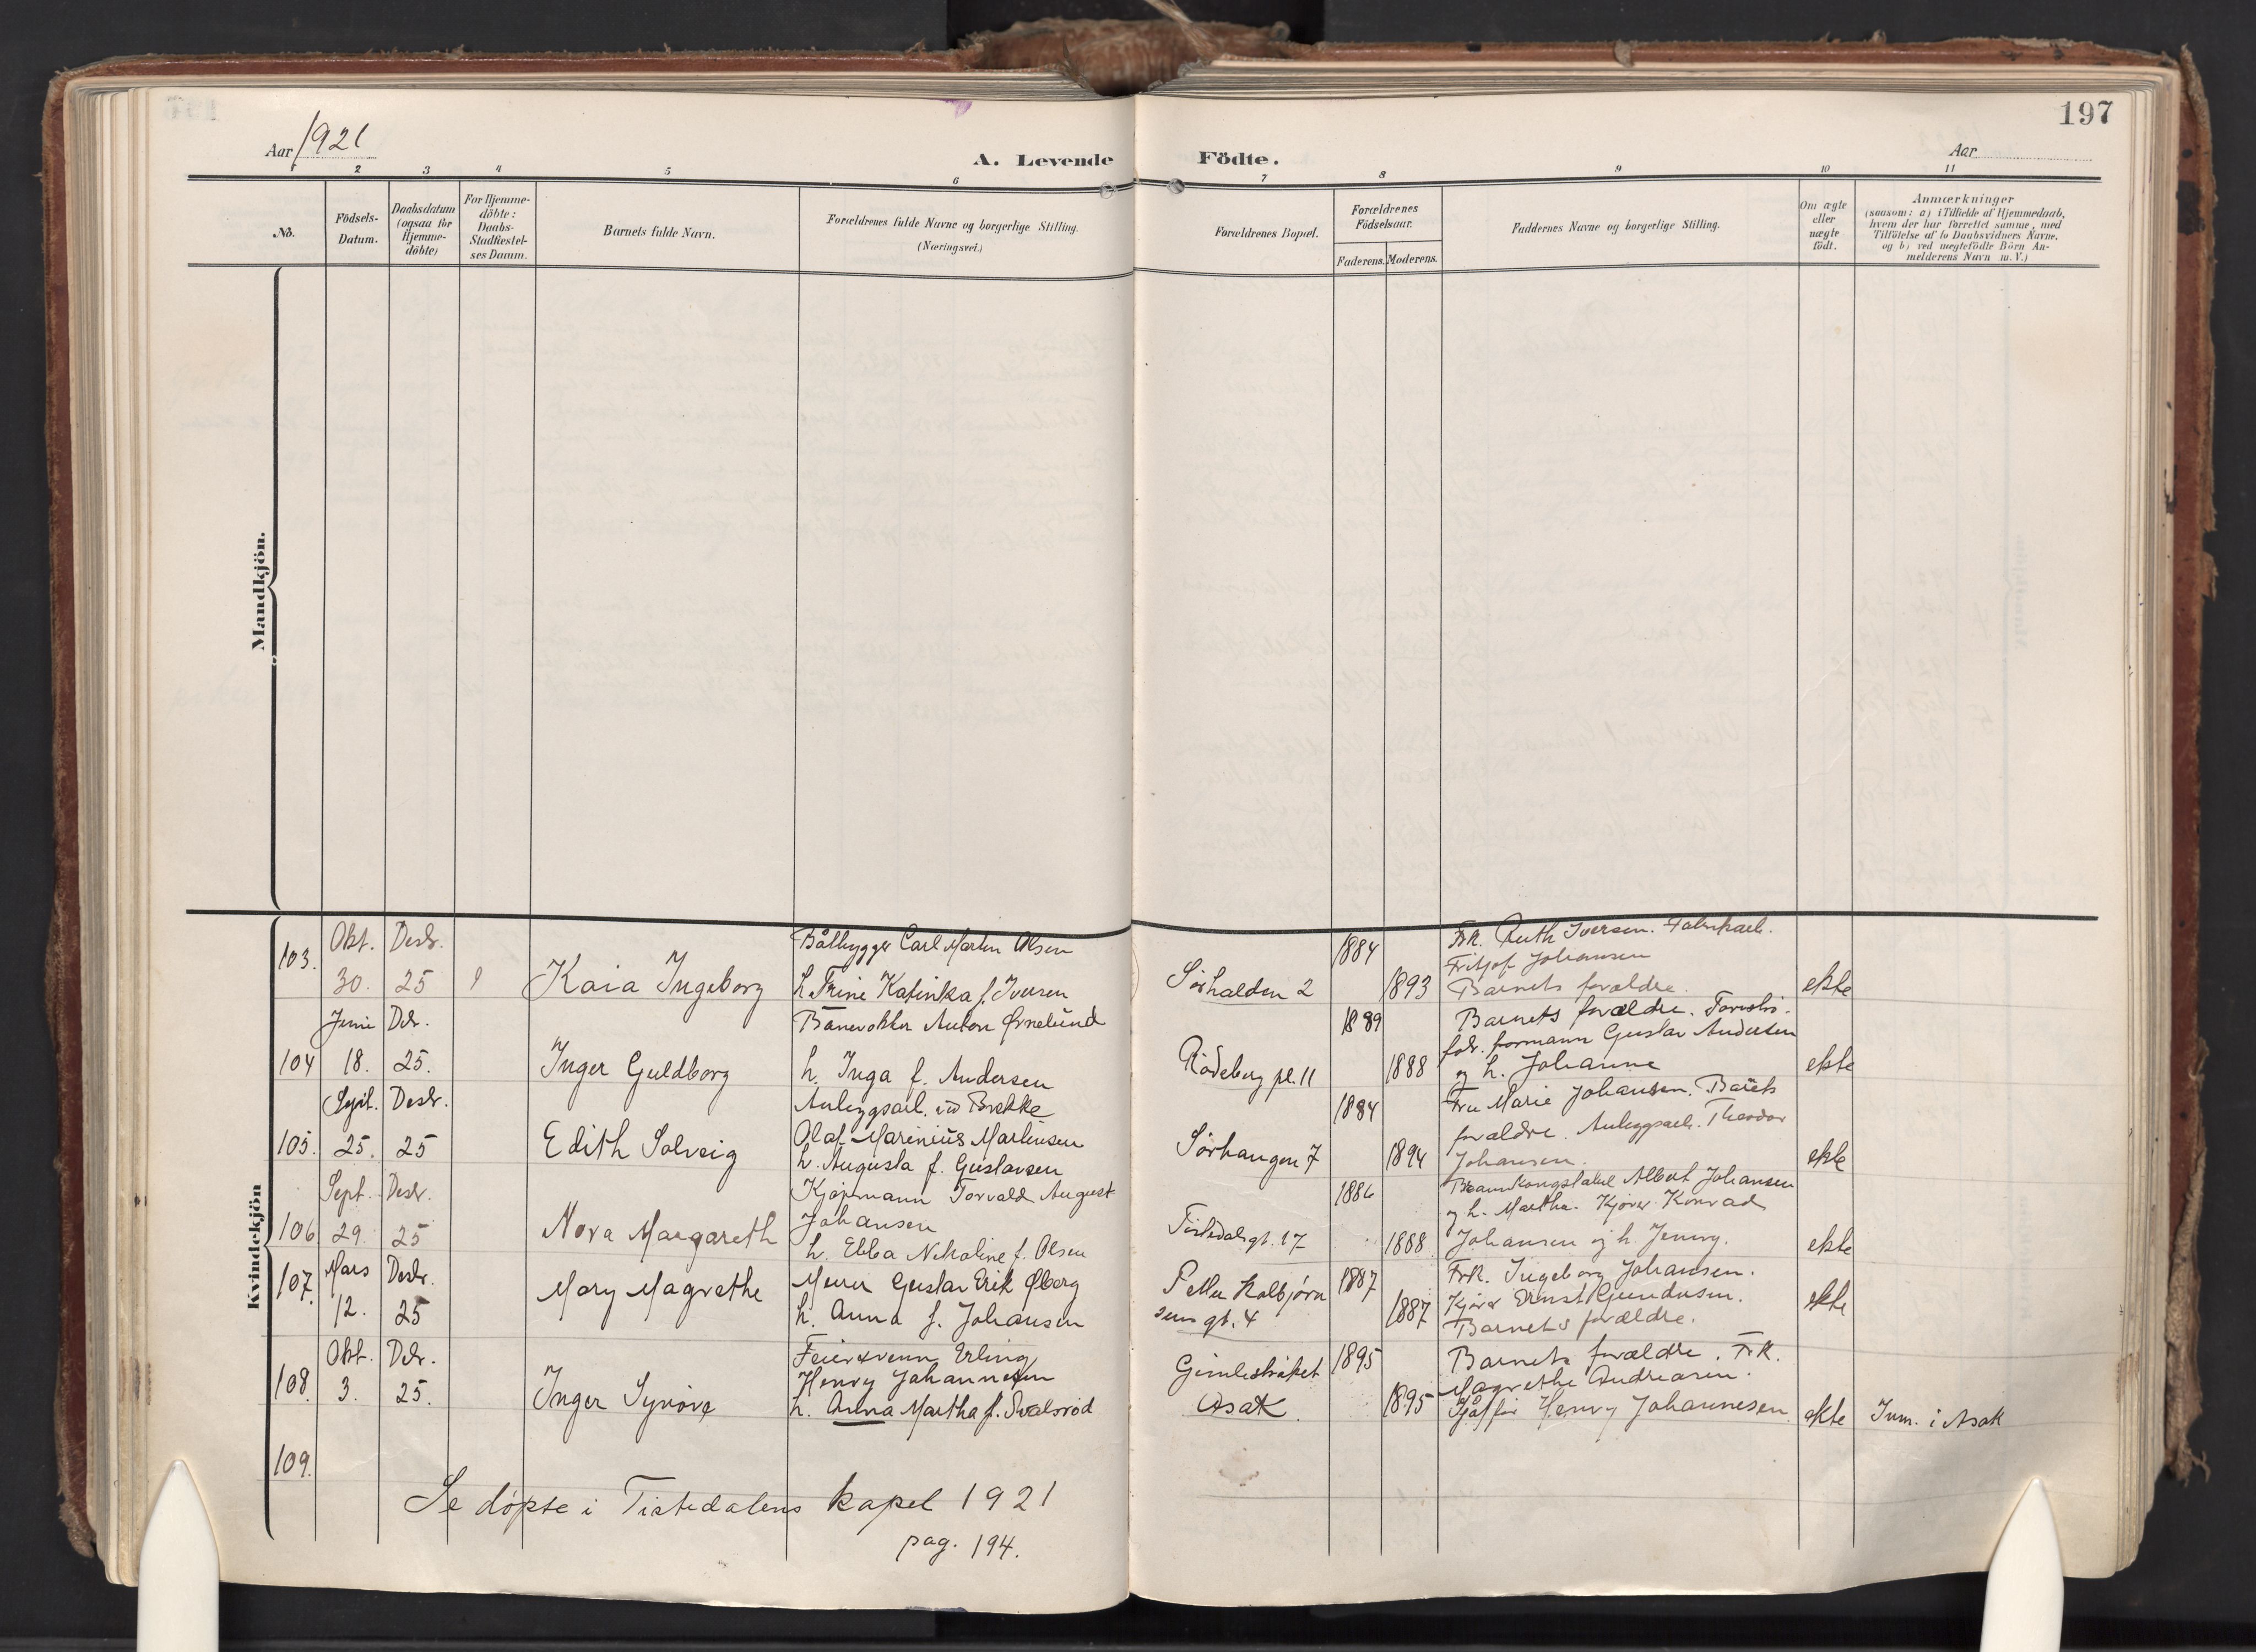 197
Aar 1921
A. Levende Födte.
Aar
1 2 3 4 5 6 7 8 9 10 11
No.
Födsels-Datum.
Daabsdatum (ogsaa för Hjemme-döbte)
For Hjemme-döbte: Daabs-Stadfæstel-ses Datum.
Barnets fulde Navn.
Forældrenes fulde Navne og borgerlige Stilling. (Næringsvei.)
Forældrenes Bopæl.
Forældrenes Födselsaar.
Faderens. Moderens.
Faddernes Navne og borgerlige Stilling.
Om ægte eller uægte födt.
Anmærkninger
(saasom: a) i Tilfælde af Hjemmedaab,
hvem der har forrettet samme, med
Tilföielse af to Daabsvidners Navne,
og b) ved uægtefödte Börn An-
melderens Navn m. V.)
Mandkjön.
Kvindekjön
103. Okt. 30. Desbr. 25
Kaia Ingeborg
Båtbygger Carl Martin Olsen
h. Trine Katinka f. Iversen
Sørhalden 2
1884
1893
Frk. Ruth Iversen. Fabrikarb.
Fritjof Johansen
Barnets forældre.
ekte
104 Juni 18. Debr. 25.
Inger Guldborg
Banevokter Anton Ørnelund
h. Inga f. Andersen
Rødsberg pl. 11
1889
1888
Barnets forældre.
formann Gustav Andersen
og h. Johanne
ekte
105. Sept. 25. Desbr. 25
Edith Solveig
Anleggsarb. ved Brekke
Olaf Marinius Martinsen
h. Augusta f. Gustavsen
Sørhaugen 7
1884
1894
Fru Marie Johansen. Barnets
forældre. Anleggsarb. Theodor
Johansen.
ekte
106 Sept. 29. Desbr. 25
Nora Margareth
Kjøpmann Torvald August
Johansen
h. Ebba Nikoline f. Olsen
Tistedalsgt. 17
1886
1888
Albert Johansen
og h. Martha. Kjører Konrad
Johansen og h. Jenny.
ekte
107. Mars 12. Desbr. 25
Mary Magrethe
Murer Gustav Erik Øberg
h. Anna f. Johansen
Petter Kolbjørn
sens gt. 4
1887
1887
Frk. Ingeborg Johansen.
Kjører Ernst Gundersen.
Barnets forældre.
ekte
108. Okt. 3. Debr. 25.
Inger Synøve
Feiersvenn Erling
Henry Johannesen
h. Anna Martha f. Svalerød
Gimlestrøket
Asak.
1895
1895
Barnets forældre. Frk.
Magrethe Andreasen.
Sjåffør Henry Johannesen
ekte
Inm. i Asak
109.
Se døpte i Tistedalens kapel 1921
pag. 194.